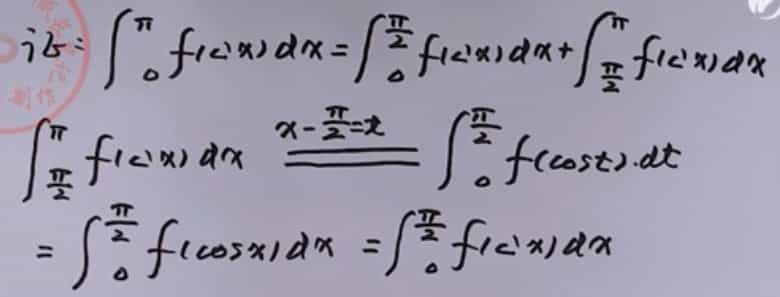 证: ∫₀^π f(sinx)dx = ∫₀^{π/2} f(sinx)dx + ∫_{π/2}^π f(sinx)dx
∫_{π/2}^π f(sinx)dx \xlongequal{x-π/2=t} ∫₀^{π/2} f(cost).dt
= ∫₀^{π/2} f(cosx)dx = ∫₀^{π/2} f(sinx)dx
制作